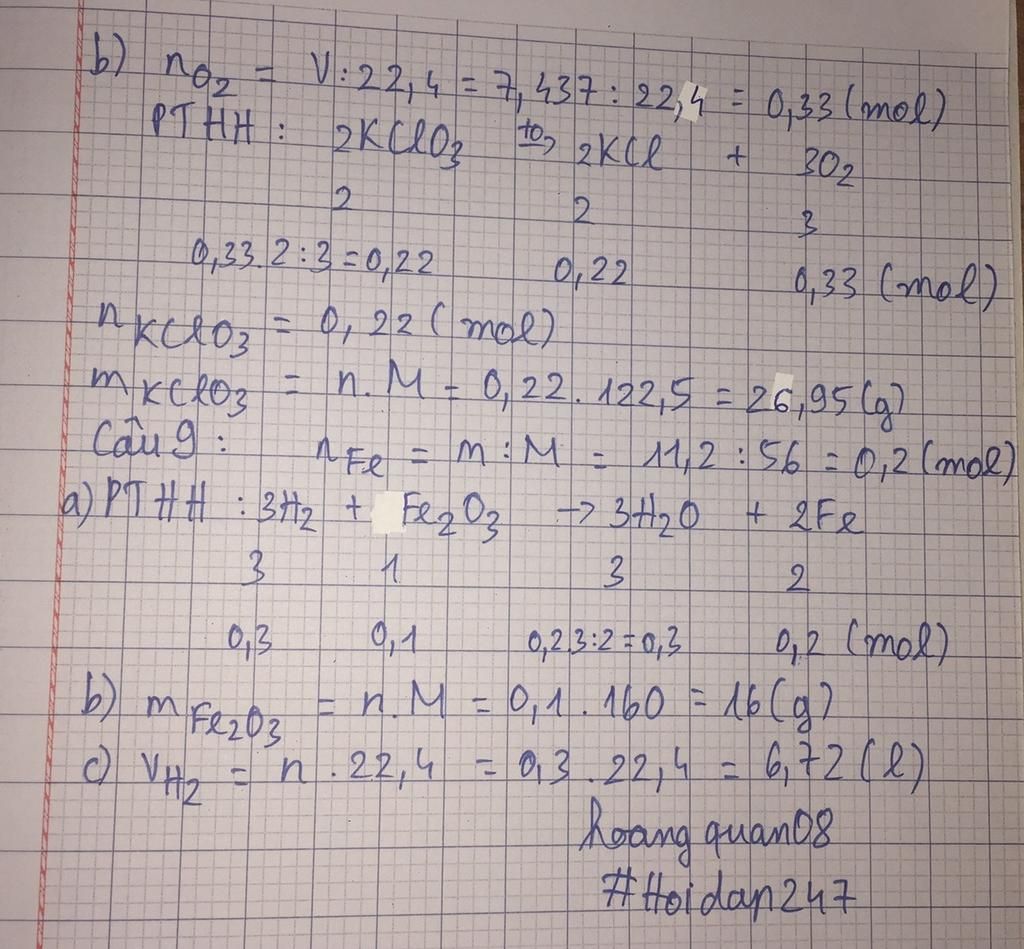 b) nO2 = V : 22,4 = 7,437 : 22,4 = 0,33 (mol)
PTHH : 2KClO3 to→ 2KCl + 3O2
2 2 3
0,33.2:3=0,22 0,22 0,33 (mol)
nKClO3 = 0,22 (mol)
mKClO3 = n.M = 0,22.122,5 = 26,95(g)
Câu 9 : nFe = m : M = 11,2 : 56 = 0,2 (mol)
a) PTHH : 3H2 + Fe2O3 → 3H2O + 2Fe
3 1 3 2
0,3 0,1 0,2.3:2=0,3 0,2 (mol)
b) mFe2O3 = n.M = 0,1.160 = 16(g)
c) VH2 = n.22,4 = 0,3.22,4 = 6,72 (l)
hoangquan08
#Hoidap247